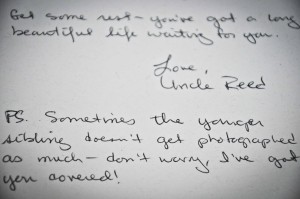 Get some rest - you've got a long
beautiful life waiting for you.
Love,
Uncle Reed
PS. Sometimes the younger
sibling doesn't get photographed
as much - don't worry, I've got
you covered!